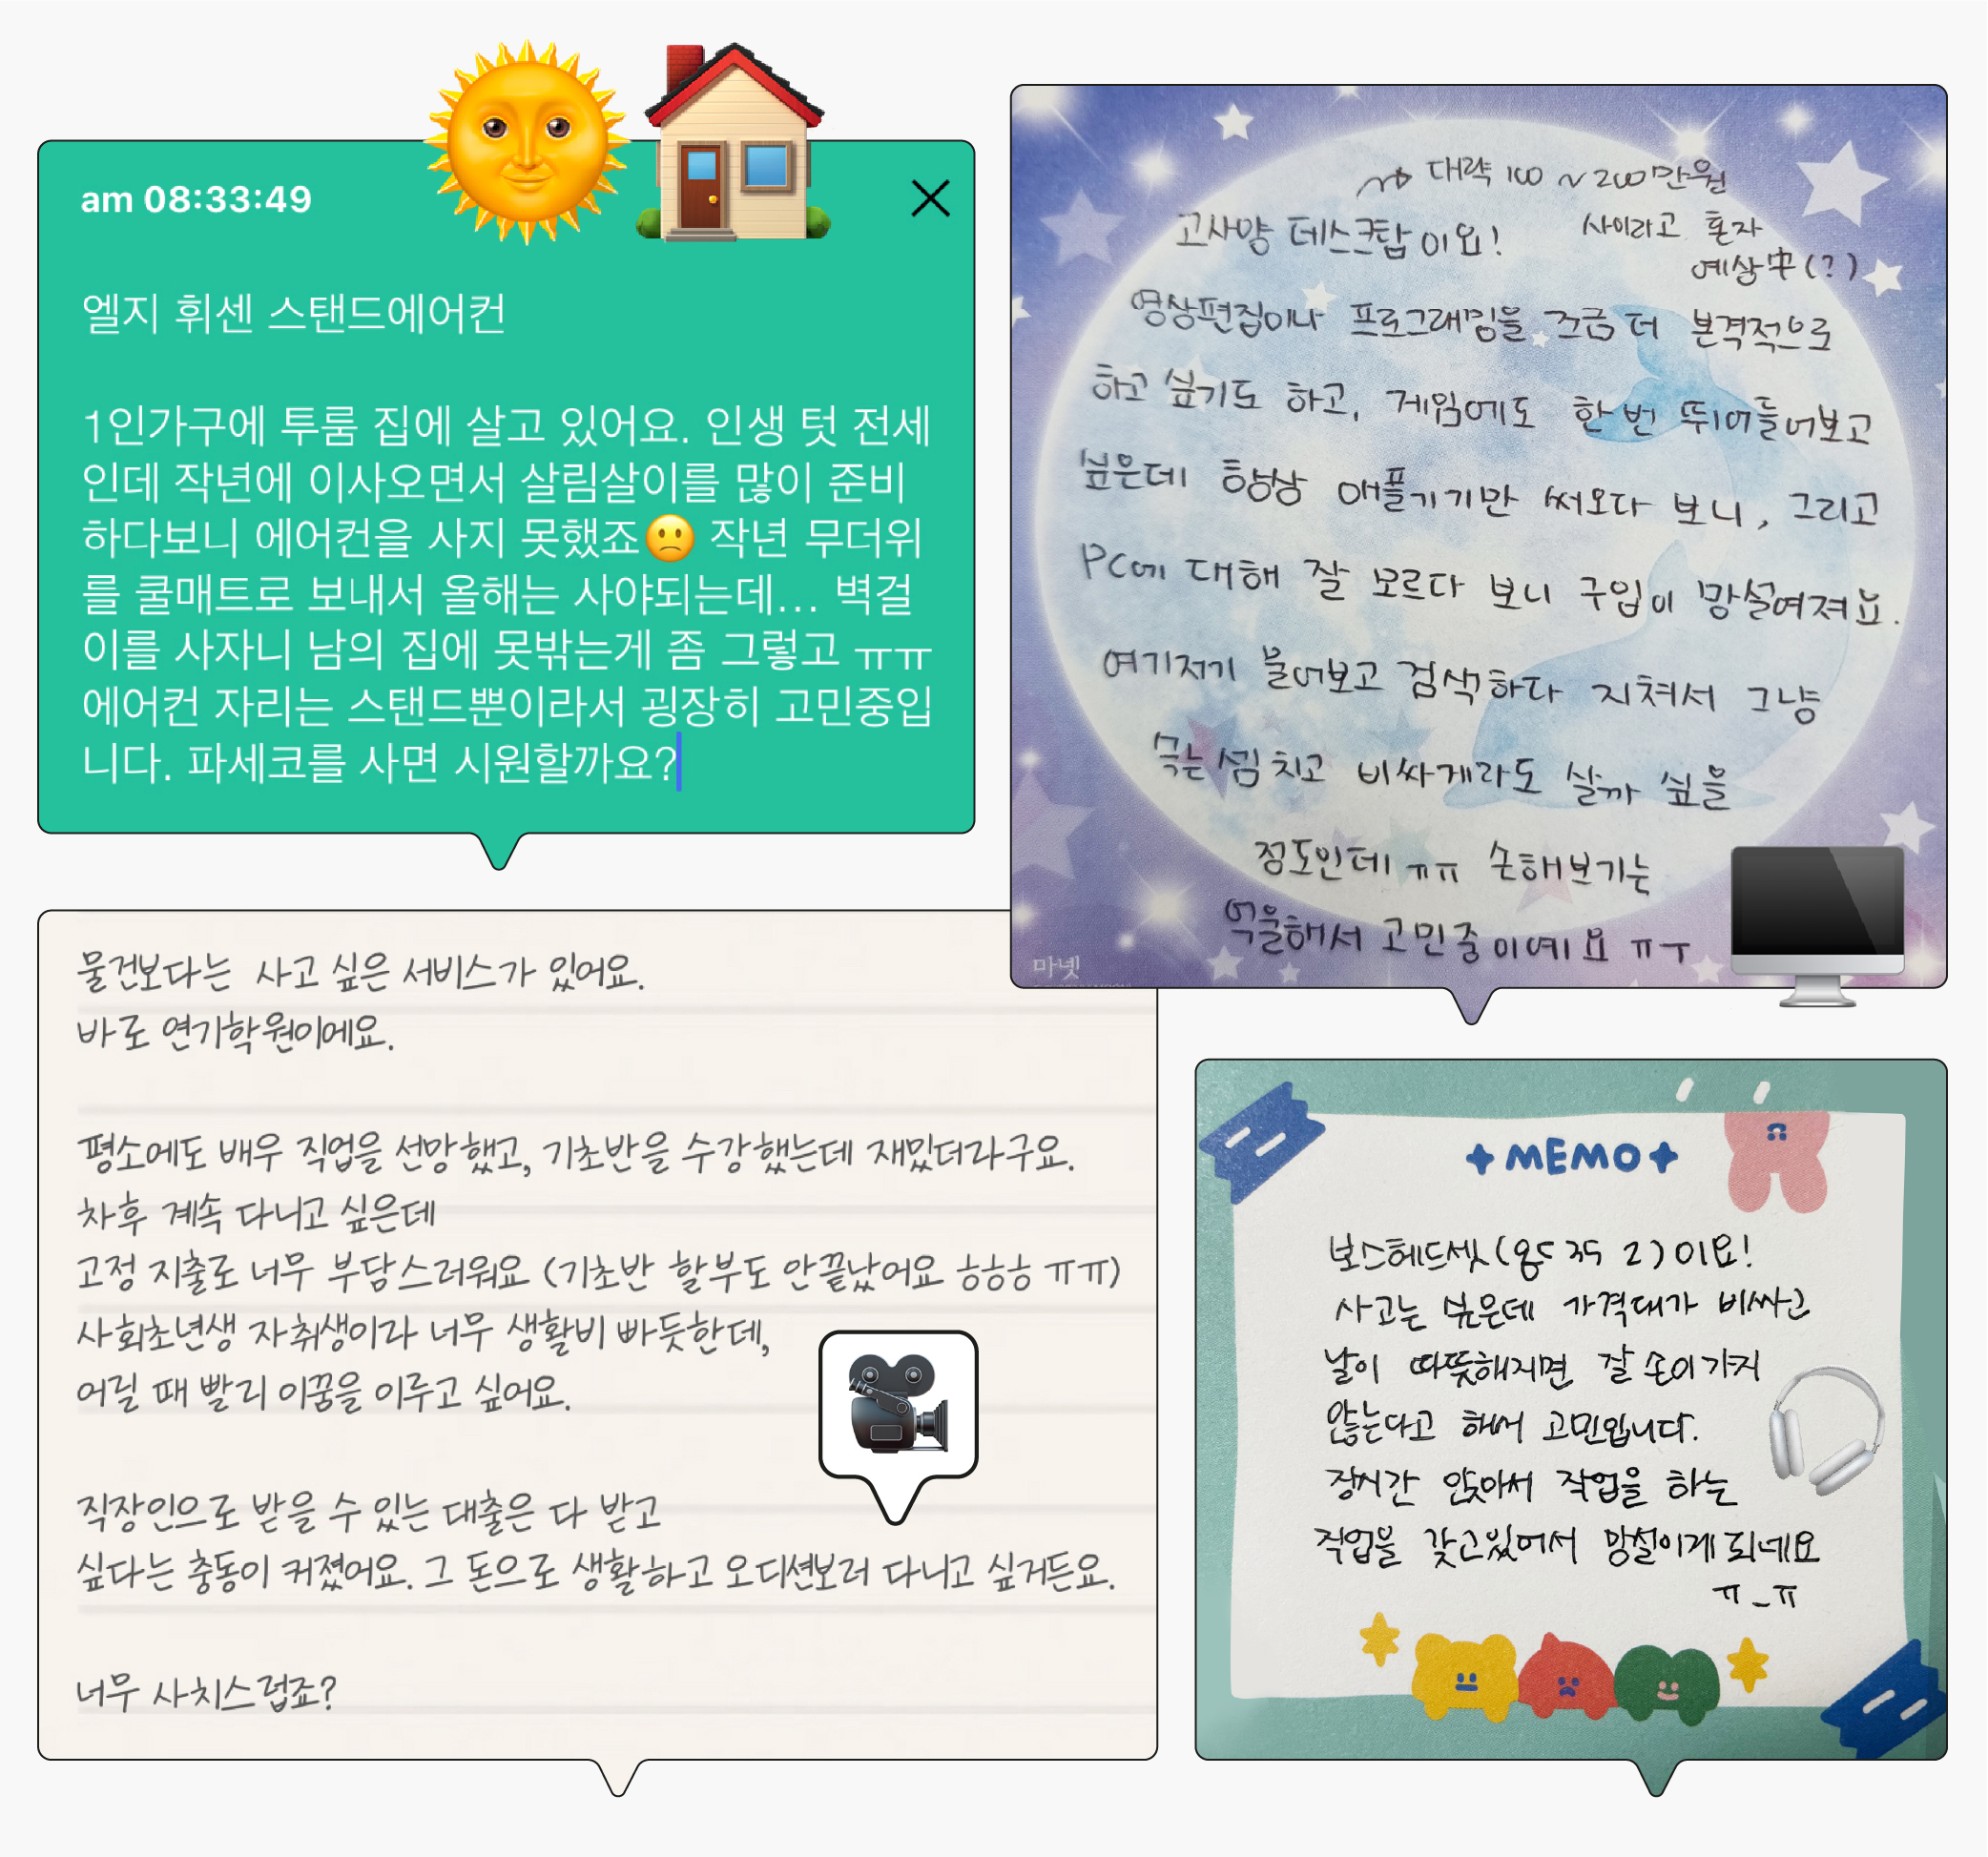 am 08:33:49
엘지 휘센 스탠드에어컨
1인가구에 투룸 집에 살고 있어요. 인생 텃 전세
인데 작년에 이사오면서 살림살이를 많이 준비
하다보니 에어컨을 사지 못했죠🙁 작년 무더위
를 쿨매트로 보내서 올해는 사야되는데... 벽걸
이를 사자니 남의 집에 못밖는게 좀 그렇고 ㅠㅠ
에어컨 자리는 스탠드뿐이라서 굉장히 고민중입
니다. 파세코를 사면 시원할까요?
대략 100 ~ 200만원
사이라고 혼자
예상中(?)
고사양 데스크탑이요!
영상편집이나 프로그래밍을 조금 더 본격적으로
하고 싶기도 하고, 게임에도 한 번 뛰어들어보고
싶은데 항상 애플기기만 써오다 보니, 그리고
PC에 대해 잘 모르다 보니 구입이 망설여져요.
여기저기 물어보고 검색하다 지쳐서 그냥
속는 셈 치고 비싸게라도 살까 싶을
정도인데 ㅠㅠ 손해보기는
억울해서 고민중이예요 ㅠㅜ
마넷
물건보다는 사고 싶은 서비스가 있어요.
바로 연기학원이에요.
평소에도 배우 직업을 선망했고, 기초반을 수강했는데 재밌더라구요.
차후 계속 다니고 싶은데
고정 지출로 너무 부담스러워요 (기초반 할부도 안끝났어요 하하하 ㅠㅠ)
사회초년생 자취생이라 너무 생활비 빠듯한데,
어릴 때 빨리 이꿈을 이루고 싶어요.
직장인으로 받을 수 있는 대출은 다 받고
싶다는 충동이 커졌어요. 그 돈으로 생활하고 오디션보러 다니고 싶거든요.
너무 사치스럽죠?
MEMO
보스헤드셋(QC 35 2)이요!
사고는 싶은데 가격대가 비싸고
날이 따뜻해지면 잘 손이가지
않는다고 해서 고민입니다.
장시간 앉아서 작업을 하는
직업을 갖고있어서 망설이게 되네요
ㅠ_ㅠ